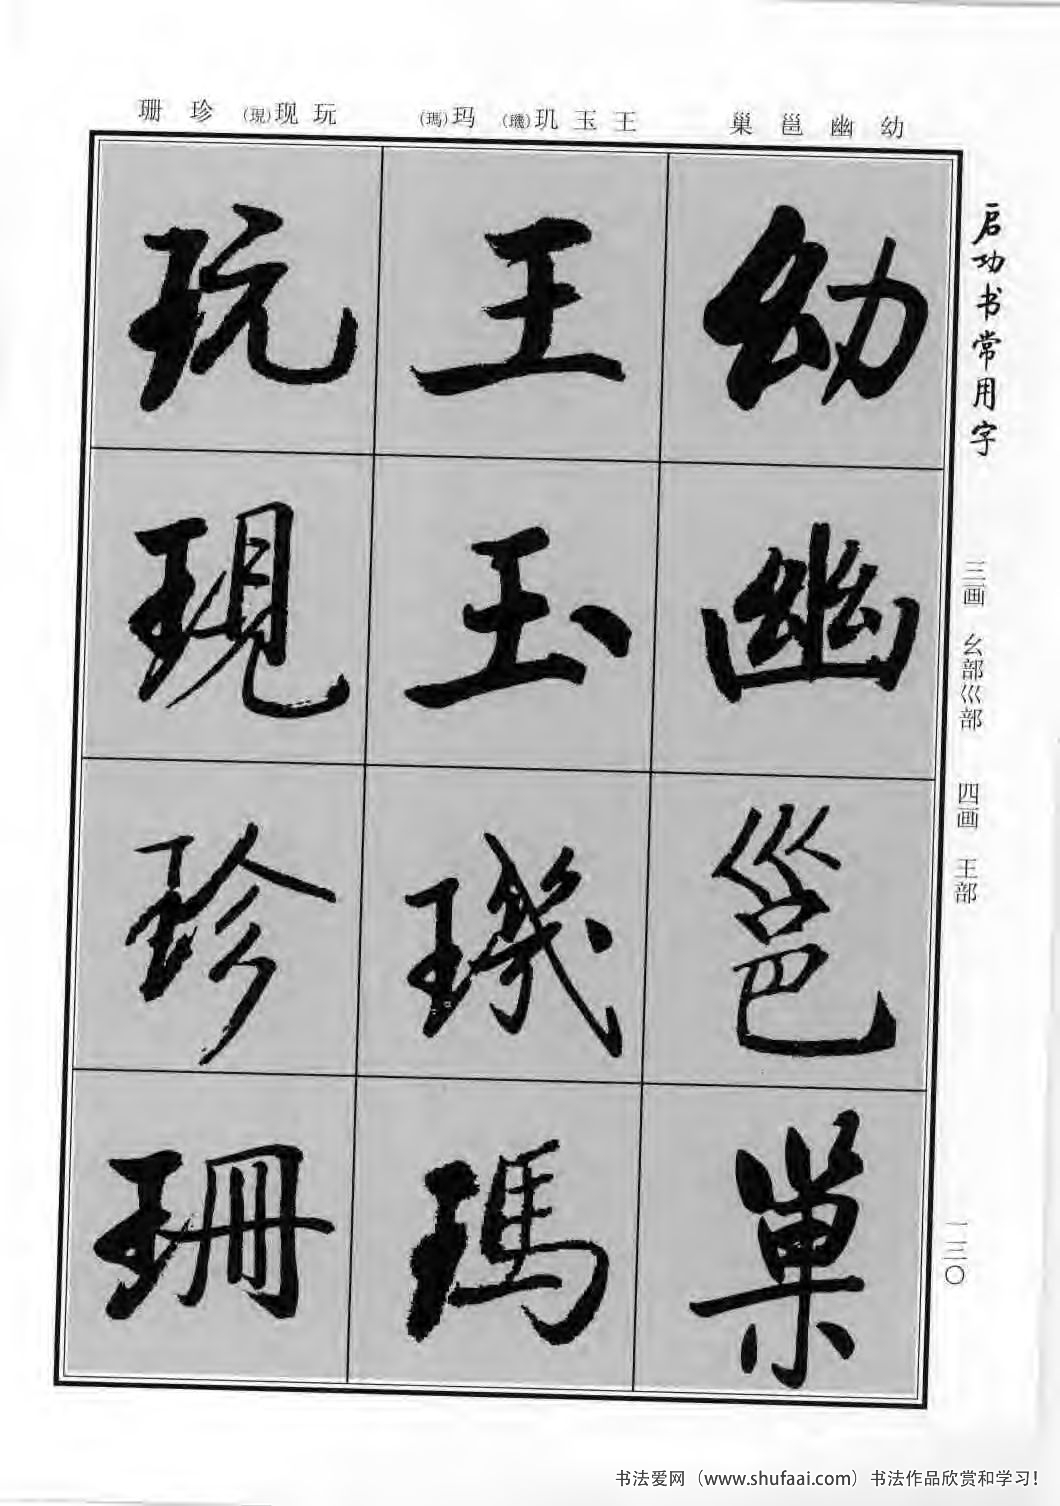 幼 幽 邕 巢
王 玉 玑(璣) 玛(瑪)
玩 现(現) 珍 珊
启功书常用字
三画 幺部巛部 四画 王部
一三〇
幼
幽
邕
巢
王
玉
璣
瑪
玩
現
珍
珊
书法爱网（www.shufaai.com）书法作品欣赏和学习!